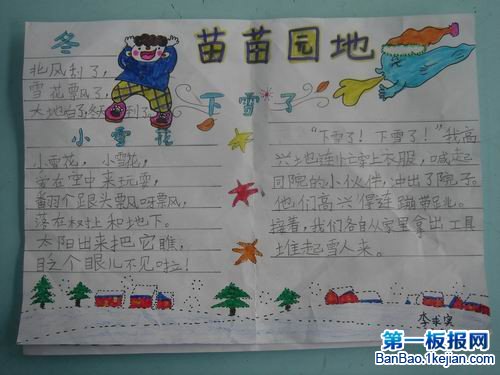 苗苗园地
冬
北风刮了，
雪花飘了，
大地白了，冬天到了。
下雪了
小雪花
小雪花，小雪花，
爱在空中来玩耍，
翻个跟头飘呀飘，
落在树上和地下。
太阳出来把它瞧，
眨个眼儿不见啦！
“下雪了！下雪了！”我高
兴地连忙穿上衣服，喊走
同院的小伙伴，冲出了院子。
他们高兴得连蹦带跳。
接着，我们各自从家里拿出工具
堆起雪人来。
第一板报网
BanBao.1kejian.com